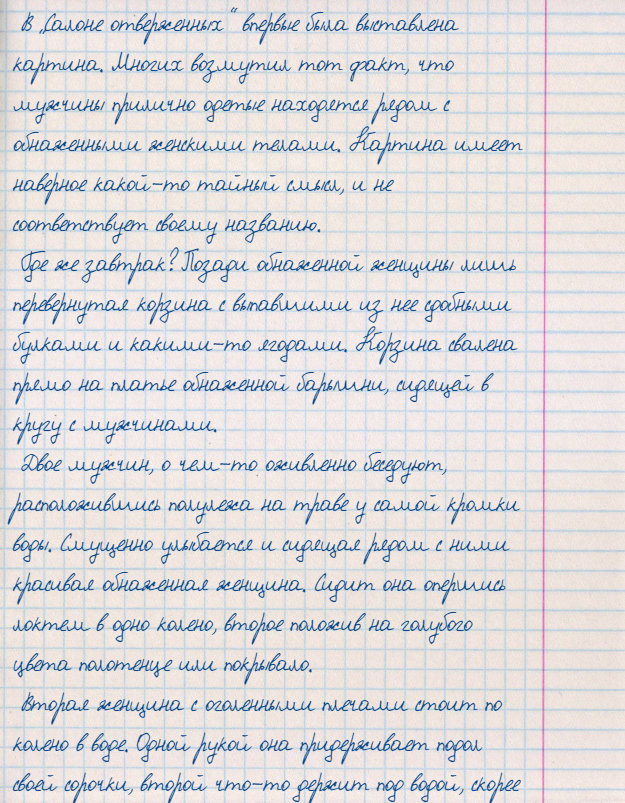 В „Салоне отверженных“ впервые была выставлена
картина. Многих возмутил тот факт, что
мужчины прилично одетые находятся рядом с
обнаженными женскими телами. Картина имеет
наверное какой-то тайный смысл, и не
соответствует своему названию.
Где же завтрак? Позади обнаженной женщины лишь
перевернутая корзина с выпавшими из нее сдобными
булками и какими-то ягодами. Корзина свалена
прямо на платье обнаженной барышни, сидящей в
кругу с мужчинами.
Двое мужчин, о чем-то оживленно беседуют,
расположившись полулежа на траве у самой кромки
воды. Смущенно улыбается и сидящая рядом с ними
красивая обнаженная женщина. Сидит она опершись
локтем в одно колено, второе положив на голубого
цвета полотенце или покрывало.
Вторая женщина с оголенными плечами стоит по
колено в воде. Одной рукой она придерживает подол
своей сорочки, второй что-то держит под водой, скорее